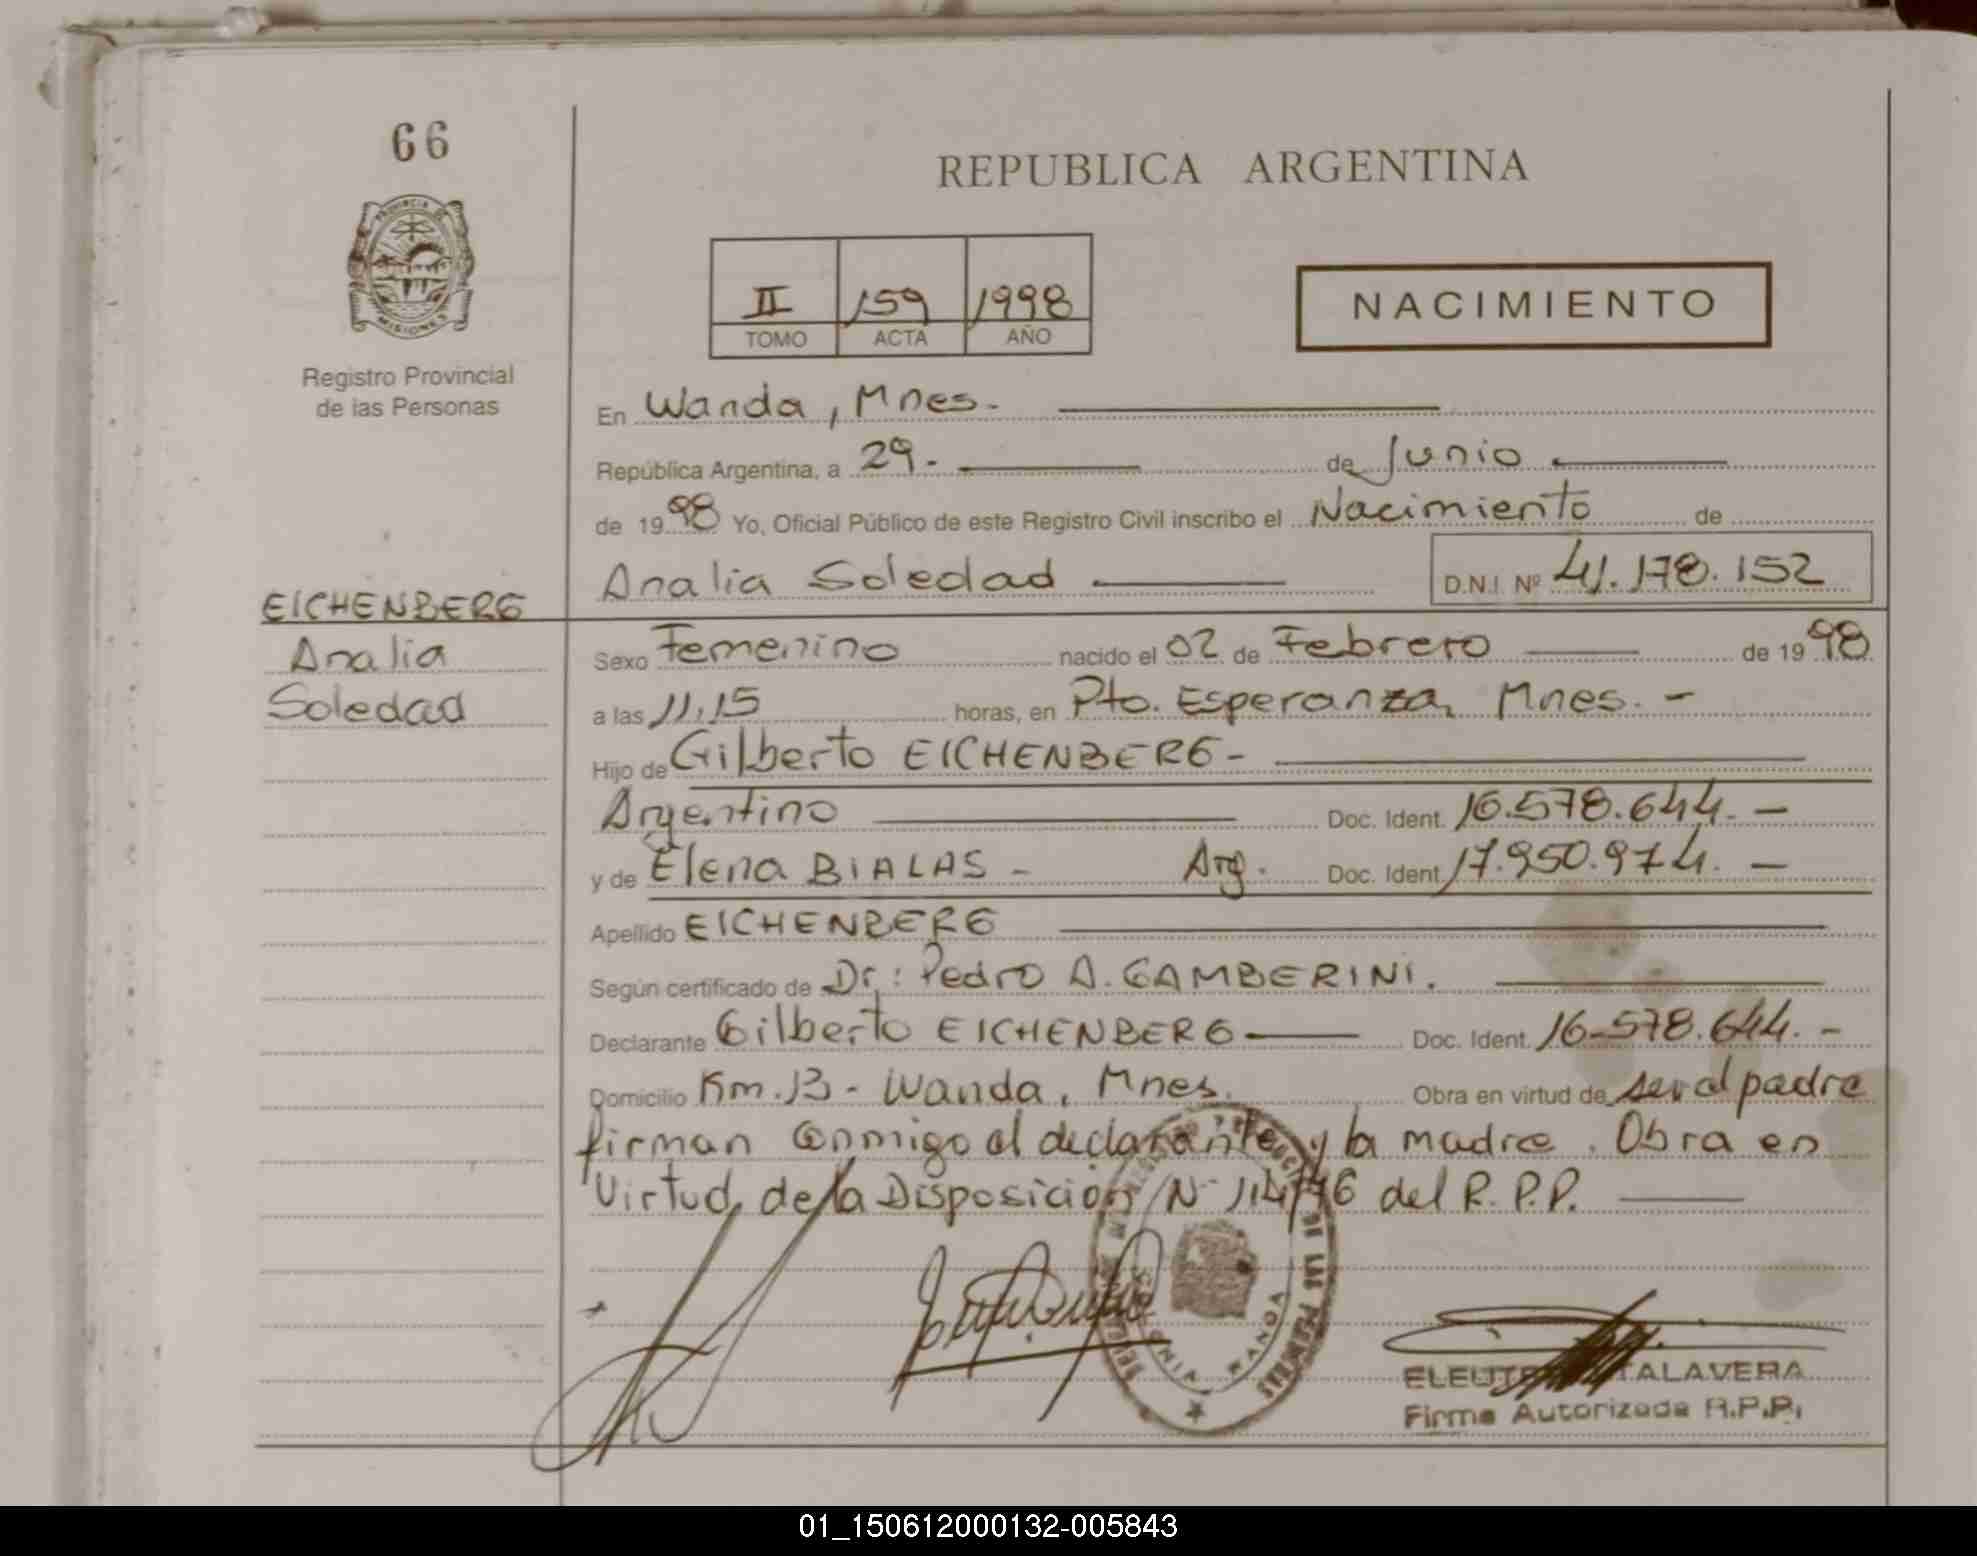 66
PROVINCIA DE
MISIONES
Registro Provincial
de las Personas
REPUBLICA ARGENTINA
II 159 1998
TOMO ACTA AÑO
NACIMIENTO
En Wanda, Mnes.
República Argentina, a 29. de Junio
de 1998 Yo, Oficial Público de este Registro Civil inscribo el Nacimiento de
Analia Soledad D.N.I. Nº 41.178.152
EICHENBERG
Analia
Soledad
Sexo Femenino nacido el 02 de Febrero de 1998
a las 11,15 horas, en Pto. Esperanza, Mnes. -
Hijo de Gilberto EICHENBERG -
Argentino Doc. Ident. 16.578.644. -
y de Elena BIALAS - Arg. Doc. Ident. 17.950.974. -
Apellido EICHENBERG
Según certificado de Dr: Pedro A. GAMBERINI.
Declarante Gilberto EICHENBERG Doc. Ident. 16-578.644. -
Domicilio Km. 13 - Wanda, Mnes. Obra en virtud de ser el padre
firman conmigo el declarante y la madre. Obra en
Virtud de la Disposición Nº del R.P.P.
DE LAS PERSONAS
WANDA
TALAVERA
Firma Autorizada R.P.P.
01_150612000132-005843